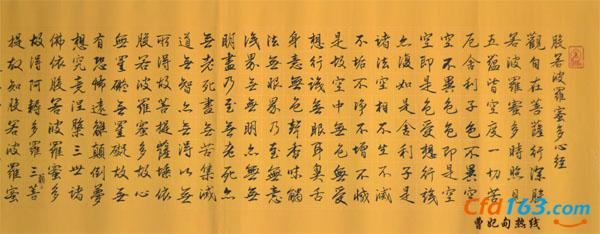 般若波羅蜜多心經
觀自在菩薩行深般
若波羅蜜多時照見
五蘊皆空度一切苦
厄舍利子色不異空
空不異色色即是空
空即是色受想行識
亦復如是舍利子是
諸法空相不生不滅
不垢不淨不增不減
是故空中無色無受
想行識無眼耳鼻舌
身意無色聲香味觸
法無眼界乃至無意
識界無無明亦無無
明盡乃至無老死亦
無老死盡無苦集滅
道無智亦無得以無
所得故菩提薩埵依
般若波羅蜜多故心
無罣礙無罣礙故無
有恐怖遠離顛倒夢
想究竟涅槃三世諸
佛依般若波羅蜜多
故得阿耨多羅三菩
提故知般若波羅蜜
Cfd163.com
曹妃甸热线